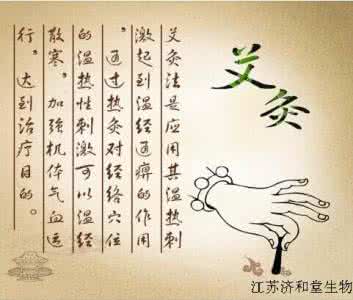 艾灸
艾灸法是应用其温热刺
激起到温经通痹的作用
，通过热灸对经络穴位
的温热性刺激可以温经
散寒，加强机体气血运
行，达到治疗目的。
江苏济和堂生物